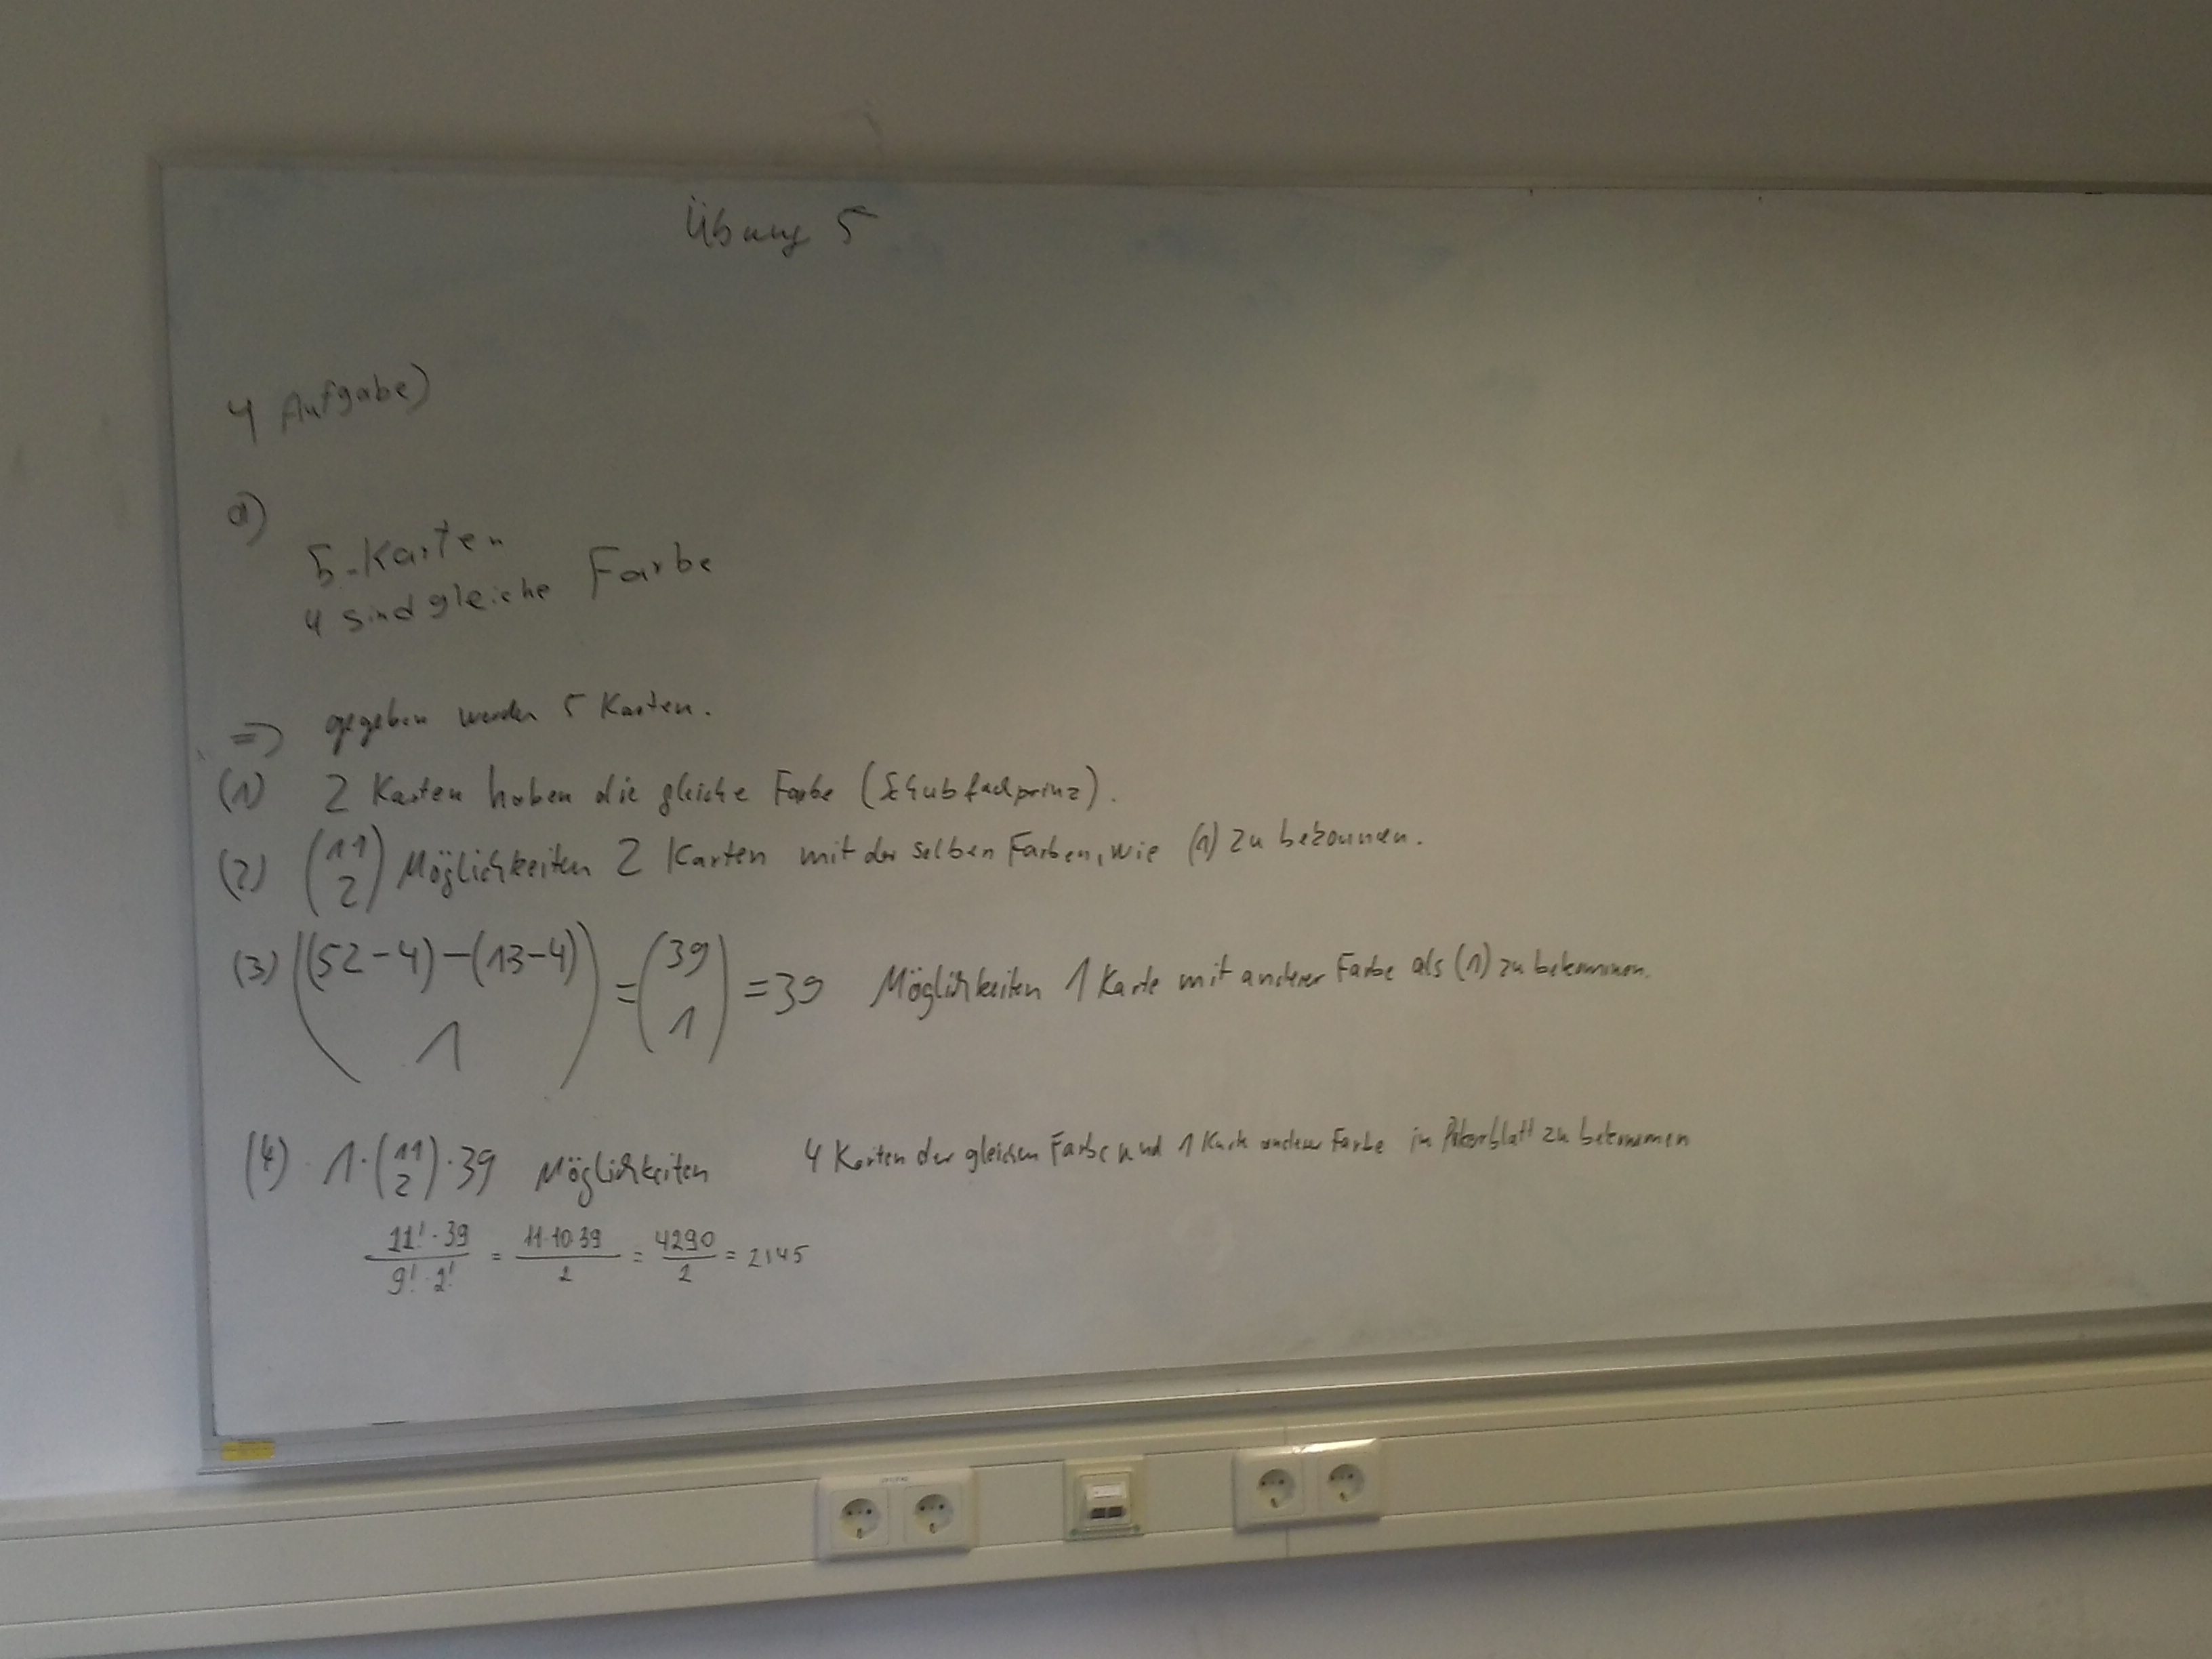 Übung 5
4 Aufgabe)
a)
5-Karten
4 sind gleiche Farbe
=> gegeben werden 5 Karten.
(1) 2 Karten haben die gleiche Farbe (Schubfachprinz).
(2) (11 2) Möglichkeiten 2 Karten mit der selben Farben, wie (1) zu bekommen.
(3) ((52-4)-(13-4) 1) = (39 1) = 39 Möglichkeiten 1 Karte mit anderer Farbe als (1) zu bekommen.
(4) 1·(11 2)·39 Möglichkeiten 4 Karten der gleichen Farbe und 1 Karte anderer Farbe im Pokerblatt zu bekommen
11!·39 / 9!·2! = 11·10·39 / 2 = 4290 / 2 = 2145